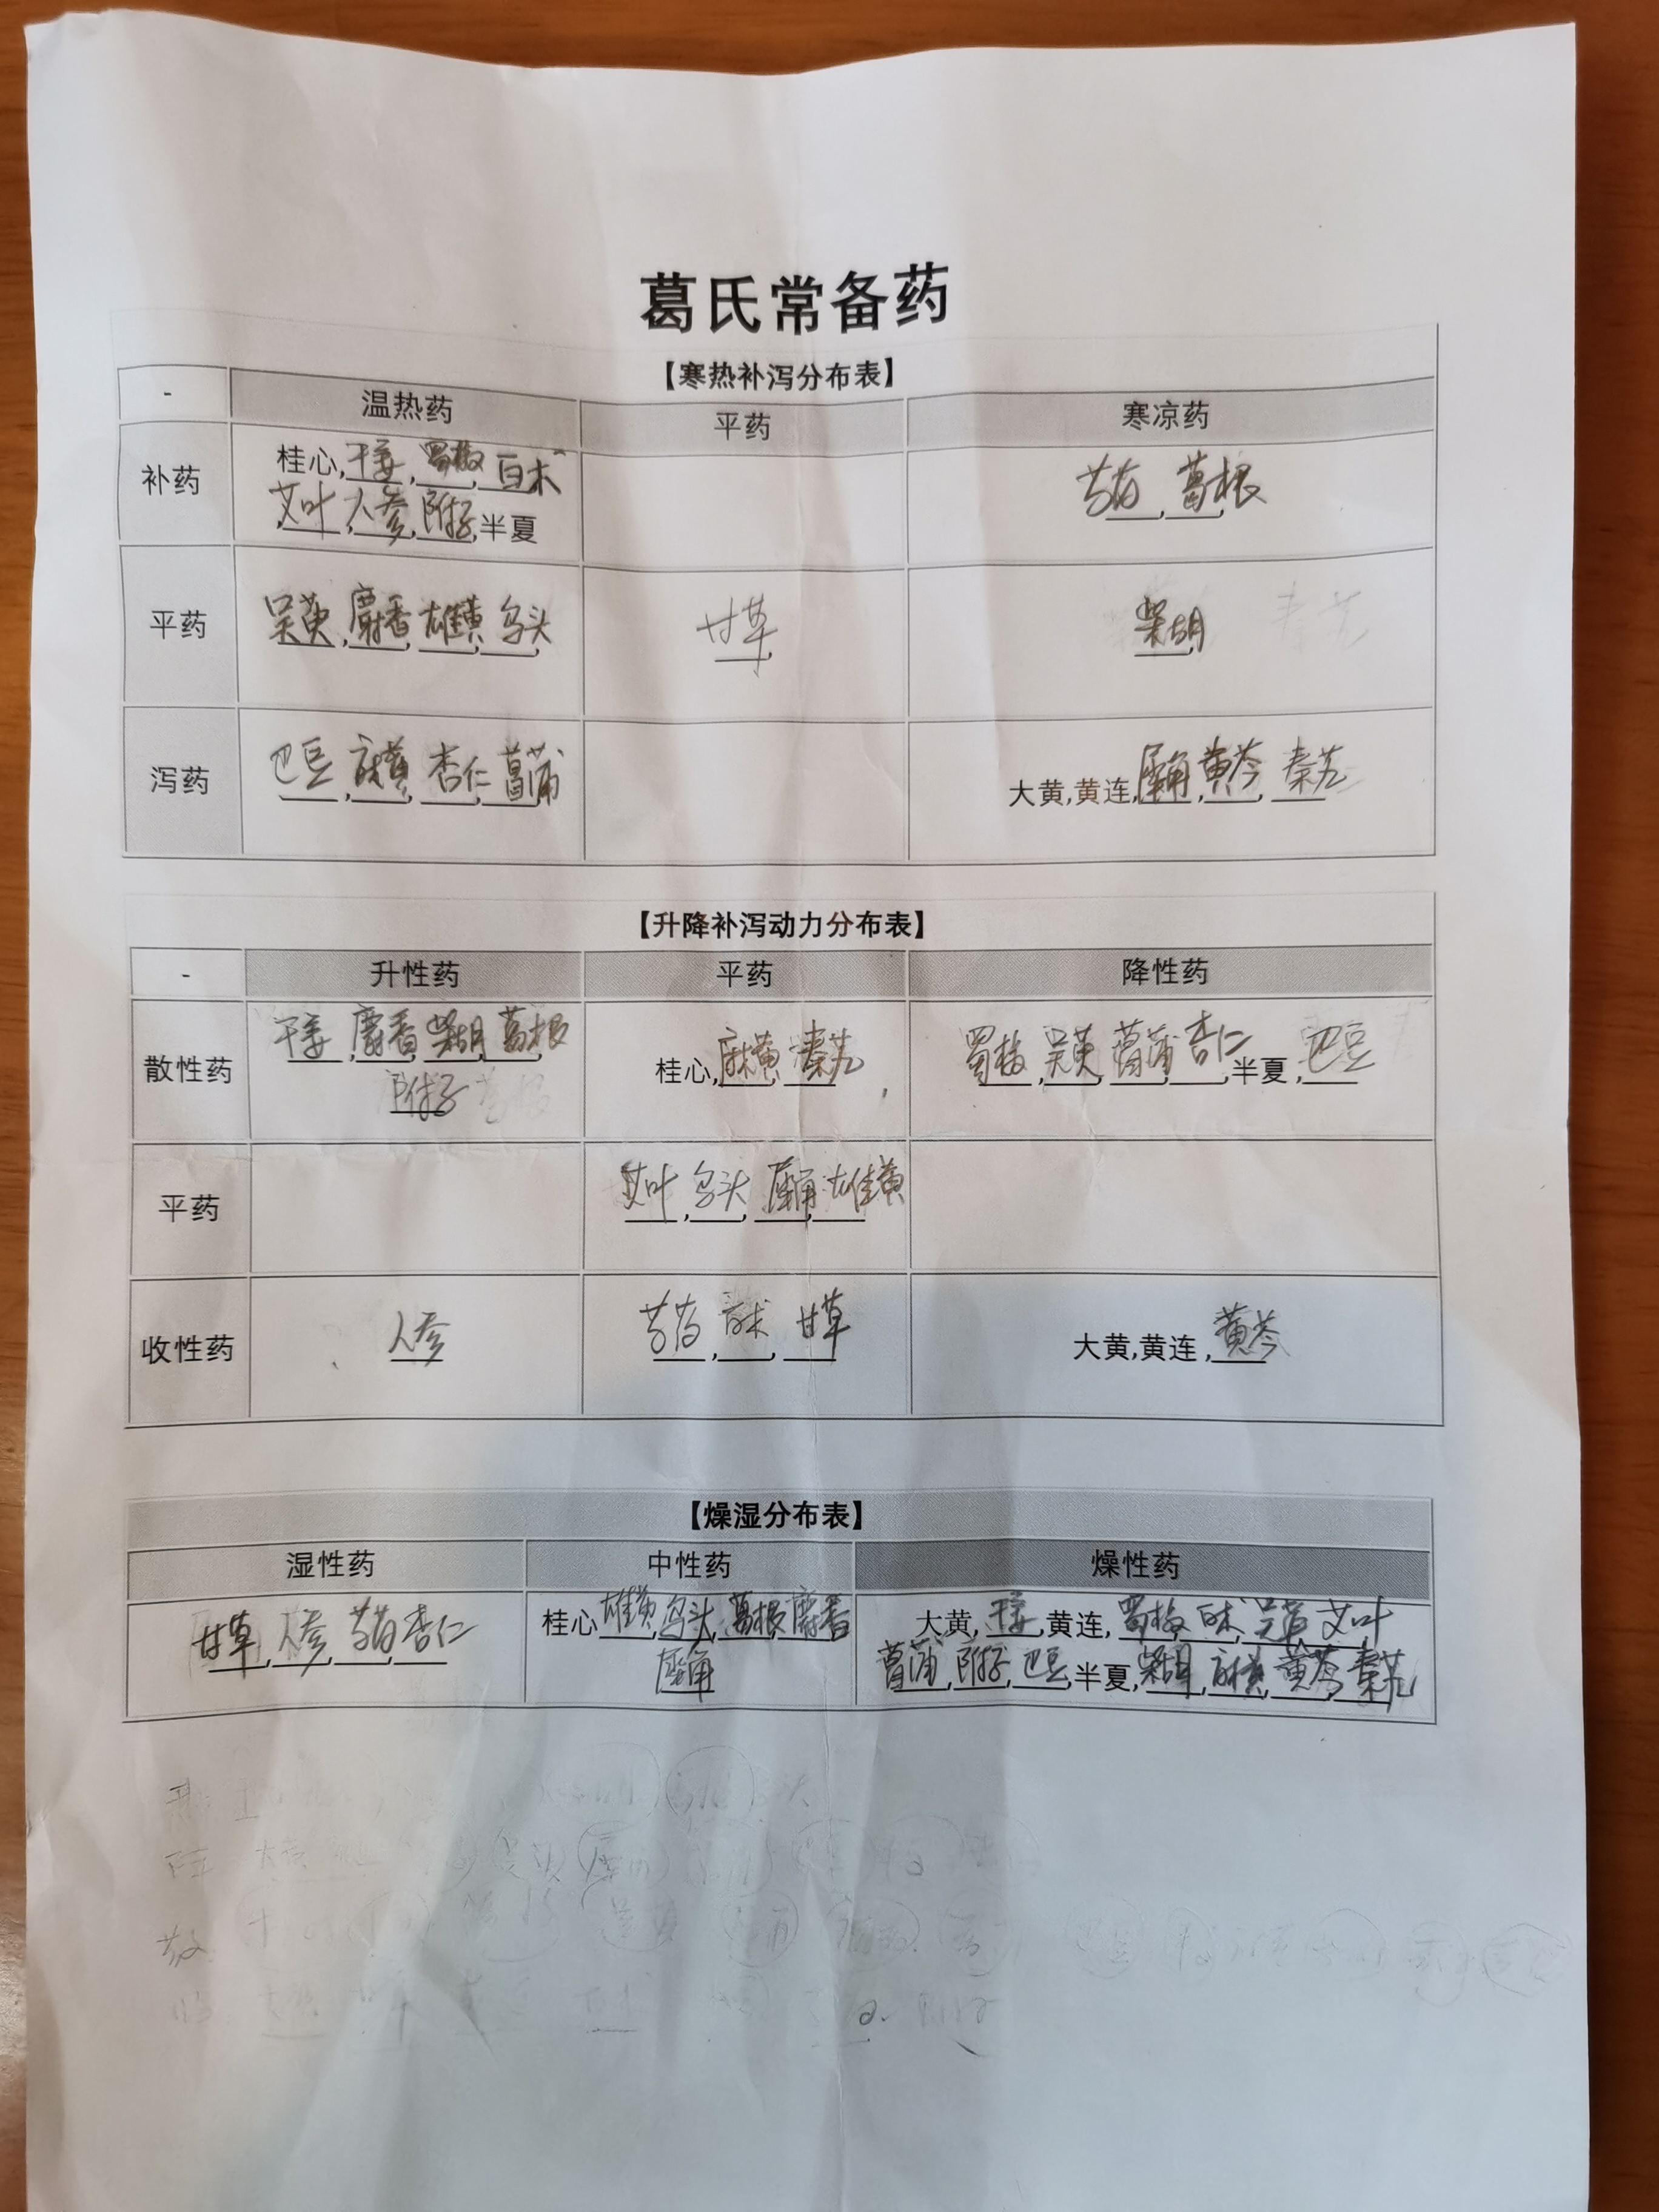 葛氏常备药
【寒热补泻分布表】
- 温热药 平药 寒凉药
补药 桂心,干姜,蜀椒,白术 芍药,葛根
艾叶,人参,附子,半夏
平药 吴萸,麝香,雄黄,乌头 甘草 柴胡 秦艽
泻药 巴豆,麻黄,杏仁,菖蒲 大黄,黄连,犀角,黄芩,秦艽
【升降补泻动力分布表】
- 升性药 平药 降性药
散性药 干姜,麝香,柴胡,葛根 桂心,麻黄,秦艽, 蜀椒,吴萸,菖蒲,杏仁,半夏,巴豆
附子
平药 艾叶,乌头,犀角,雄黄
收性药 人参 芍药,白术,甘草 大黄,黄连,黄芩
【燥湿分布表】
湿性药 中性药 燥性药
甘草,人参,芍药,杏仁 桂心,雄黄,乌头,葛根,麝香 大黄,干姜,黄连,蜀椒,白术,吴萸,艾叶
犀角 菖蒲,附子,巴豆,半夏,柴胡,麻黄,黄芩,秦艽